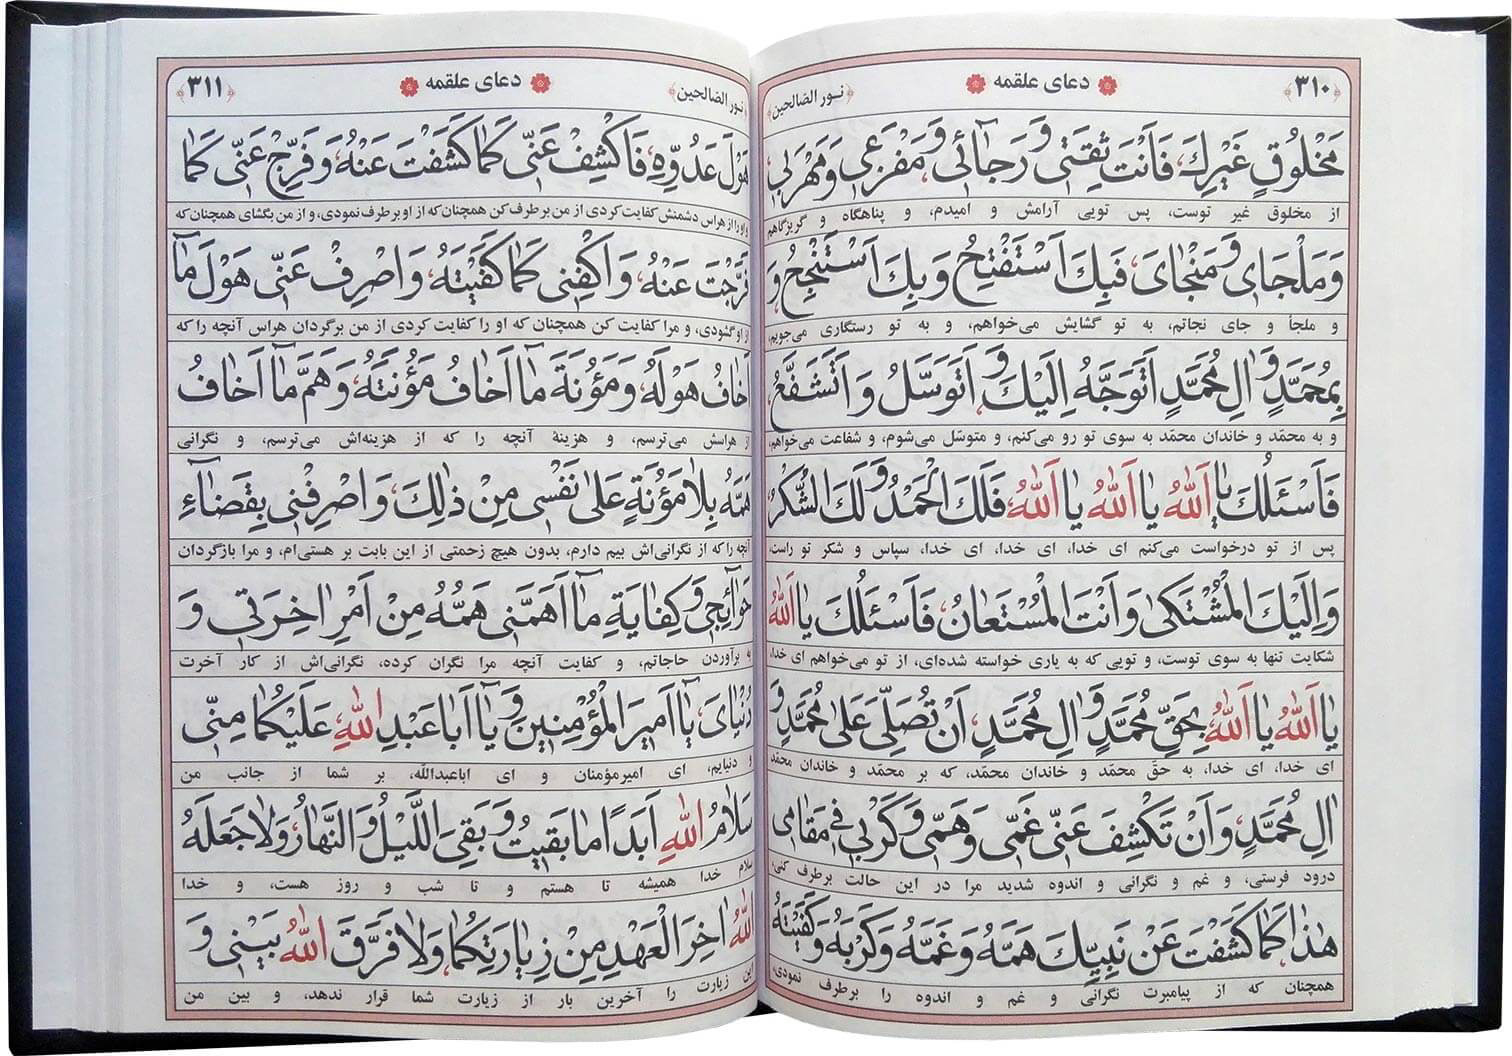 ﴿۳۱۰﴾ دعای علقمه ﴿نور الصّالحین﴾
مَخْلُوقٍ غَيْرِكَ، فَاَنْتَ ثِقَتى وَ رَجآئى، وَ مَفْزَعى وَ مَهْرَبى،
از مخلوق غیر توست، پس تویی آرامش و امیدم، و پناهگاه و گریزگاهم
وَ مَلْجَاىَ وَ مَنْجاىَ، فَبِكَ اَسْتَفْتِحُ وَ بِكَ اَسْتَنْجِحُ، وَ
و ملجأ و جای نجاتم، به تو گشایش می‌خواهم، و به تو رستگاری می‌جویم،
بِمُحَمَّدٍ وَ الِ مُحَمَّدٍ اَتَوَجَّهُ اِلَيْكَ، وَ اَتَوَسَّلُ وَ اَتَشَفَّعُ،
و به محمّد و خاندان محمّد به سوی تو رو می‌کنم، و متوسّل می‌شوم، و شفاعت می‌خواهم،
فَاَسْئَلُكَ يا اَللّٰهُ يا اَللّٰهُ يا اَللّٰهُ، فَلَكَ الْحَمْدُ وَ لَكَ الشُّكْرُ،
پس از تو درخواست می‌کنم ای خدا، ای خدا، ای خدا، سپاس و شکر تو راست،
وَ اِلَيْكَ الْمُشْتَكى وَ اَنْتَ الْمُسْتَعانُ، فَاَسْئَلُكَ يا اَللّٰهُ
شکایت تنها به سوی توست، و تویی که به یاری خواسته شده‌ای، از تو می‌خواهم ای خدا،
يا اَللّٰهُ يا اَللّٰهُ، بِحَقِّ مُحَمَّدٍ وَ الِ مُحَمَّدٍ، اَنْ تُصَلِّىَ عَلى مُحَمَّدٍ وَ
ای خدا، ای خدا، به حقّ محمّد و خاندان محمّد، که بر محمّد و خاندان محمّد
الِ مُحَمَّدٍ، وَ اَنْ تَكْشِفَ عَنّى غَمّى وَ هَمّى وَ كَرْبى فى مَقامى
درود فرستی، و غم و نگرانی و اندوه شدید مرا در این حالت برطرف کنی،
هذا، كَما كَشَفْتَ عَنْ نَبِيِّكَ هَمَّهُ وَ غَمَّهُ وَ كَرْبَهُ، وَ كَفَيْتَهُ
همچنان که از پیامبرت نگرانی و غم و اندوه را برطرف نمودی،
﴿نور الصّالحین﴾ دعای علقمه ﴿۳۱۱﴾
هَوْلَ عَدُوِّهِ، فَاكْشِفْ عَنّى كَما كَشَفْتَ عَنْهُ، وَ فَرِّجْ عَنّى كَما
و او را از هراس دشمنش کفایت کردی از من برطرف کن همچنان که از او برطرف نمودی، و از من بگشای همچنان که
فَرَّجْتَ عَنْهُ، وَ اكْفِنى كَما كَفَيْتَهُ، وَ اصْرِفْ عَنّى هَوْلَ مآ
از او گشودی، و مرا کفایت کن همچنان که او را کفایت کردی از من برگردان هراس آنچه را که
اَخافُ هَوْلَهُ، وَ مَؤُنَةَ مآ اَخافُ مَؤُنَتَهُ، وَ هَمَّ مآ اَخافُ
از هراسش می‌ترسم، و هزینهٔ آنچه را که از هزینه‌اش می‌ترسم، و نگرانی
هَمَّهُ، بِلا مَؤُنَةٍ عَلى نَفْسى مِنْ ذلِكَ، وَ اصْرِفْنى بِقَضآءِ
آنچه را که از نگرانی‌اش بیم دارم، بدون هیچ زحمتی از این بابت بر هستی‌ام، و مرا بازگردان
حَوآئِجى، وَ كِفايَةِ مآ اَهَمَّنى هَمُّهُ مِنْ اَمْرِ اخِرَتى وَ
به برآوردن حاجاتم، و کفایت آنچه مرا نگران کرده، نگرانی‌اش از کار آخرت
دُنْياىَ، يآ اَميرَ الْمُؤْمِنينَ وَ يآ اَبا عَبْدِ اللّٰهِ، عَلَيْكُما مِنّى
و دنیایم، ای امیرمؤمنان و ای اباعبداللّه، بر شما از جانب من
سَلامُ اللّٰهِ اَبَدًا ما بَقيتُ وَ بَقِىَ اللَّيْلُ وَ النَّهارُ، وَ لا جَعَلَهُ
سلام خدا همیشه تا هستم و تا شب و روز هست، و خدا
اللّٰهُ اخِرَ الْعَهْدِ مِنْ زِيارَتِكُما، وَ لا فَرَّقَ اللّٰهُ بَيْنى وَ
این زیارت را آخرین بار از زیارت شما قرار ندهد، و بین من